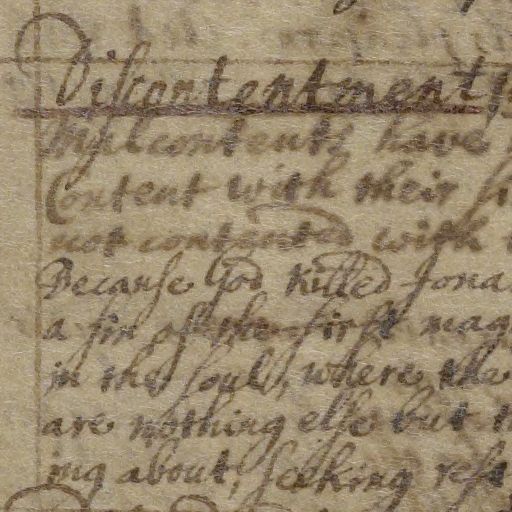 Discontentment
Malcontents have
Content with their
not contented with
Because God killed Jona
a sin of the first mag
in the soul, where the
are nothing else but
ing about, seeking rest